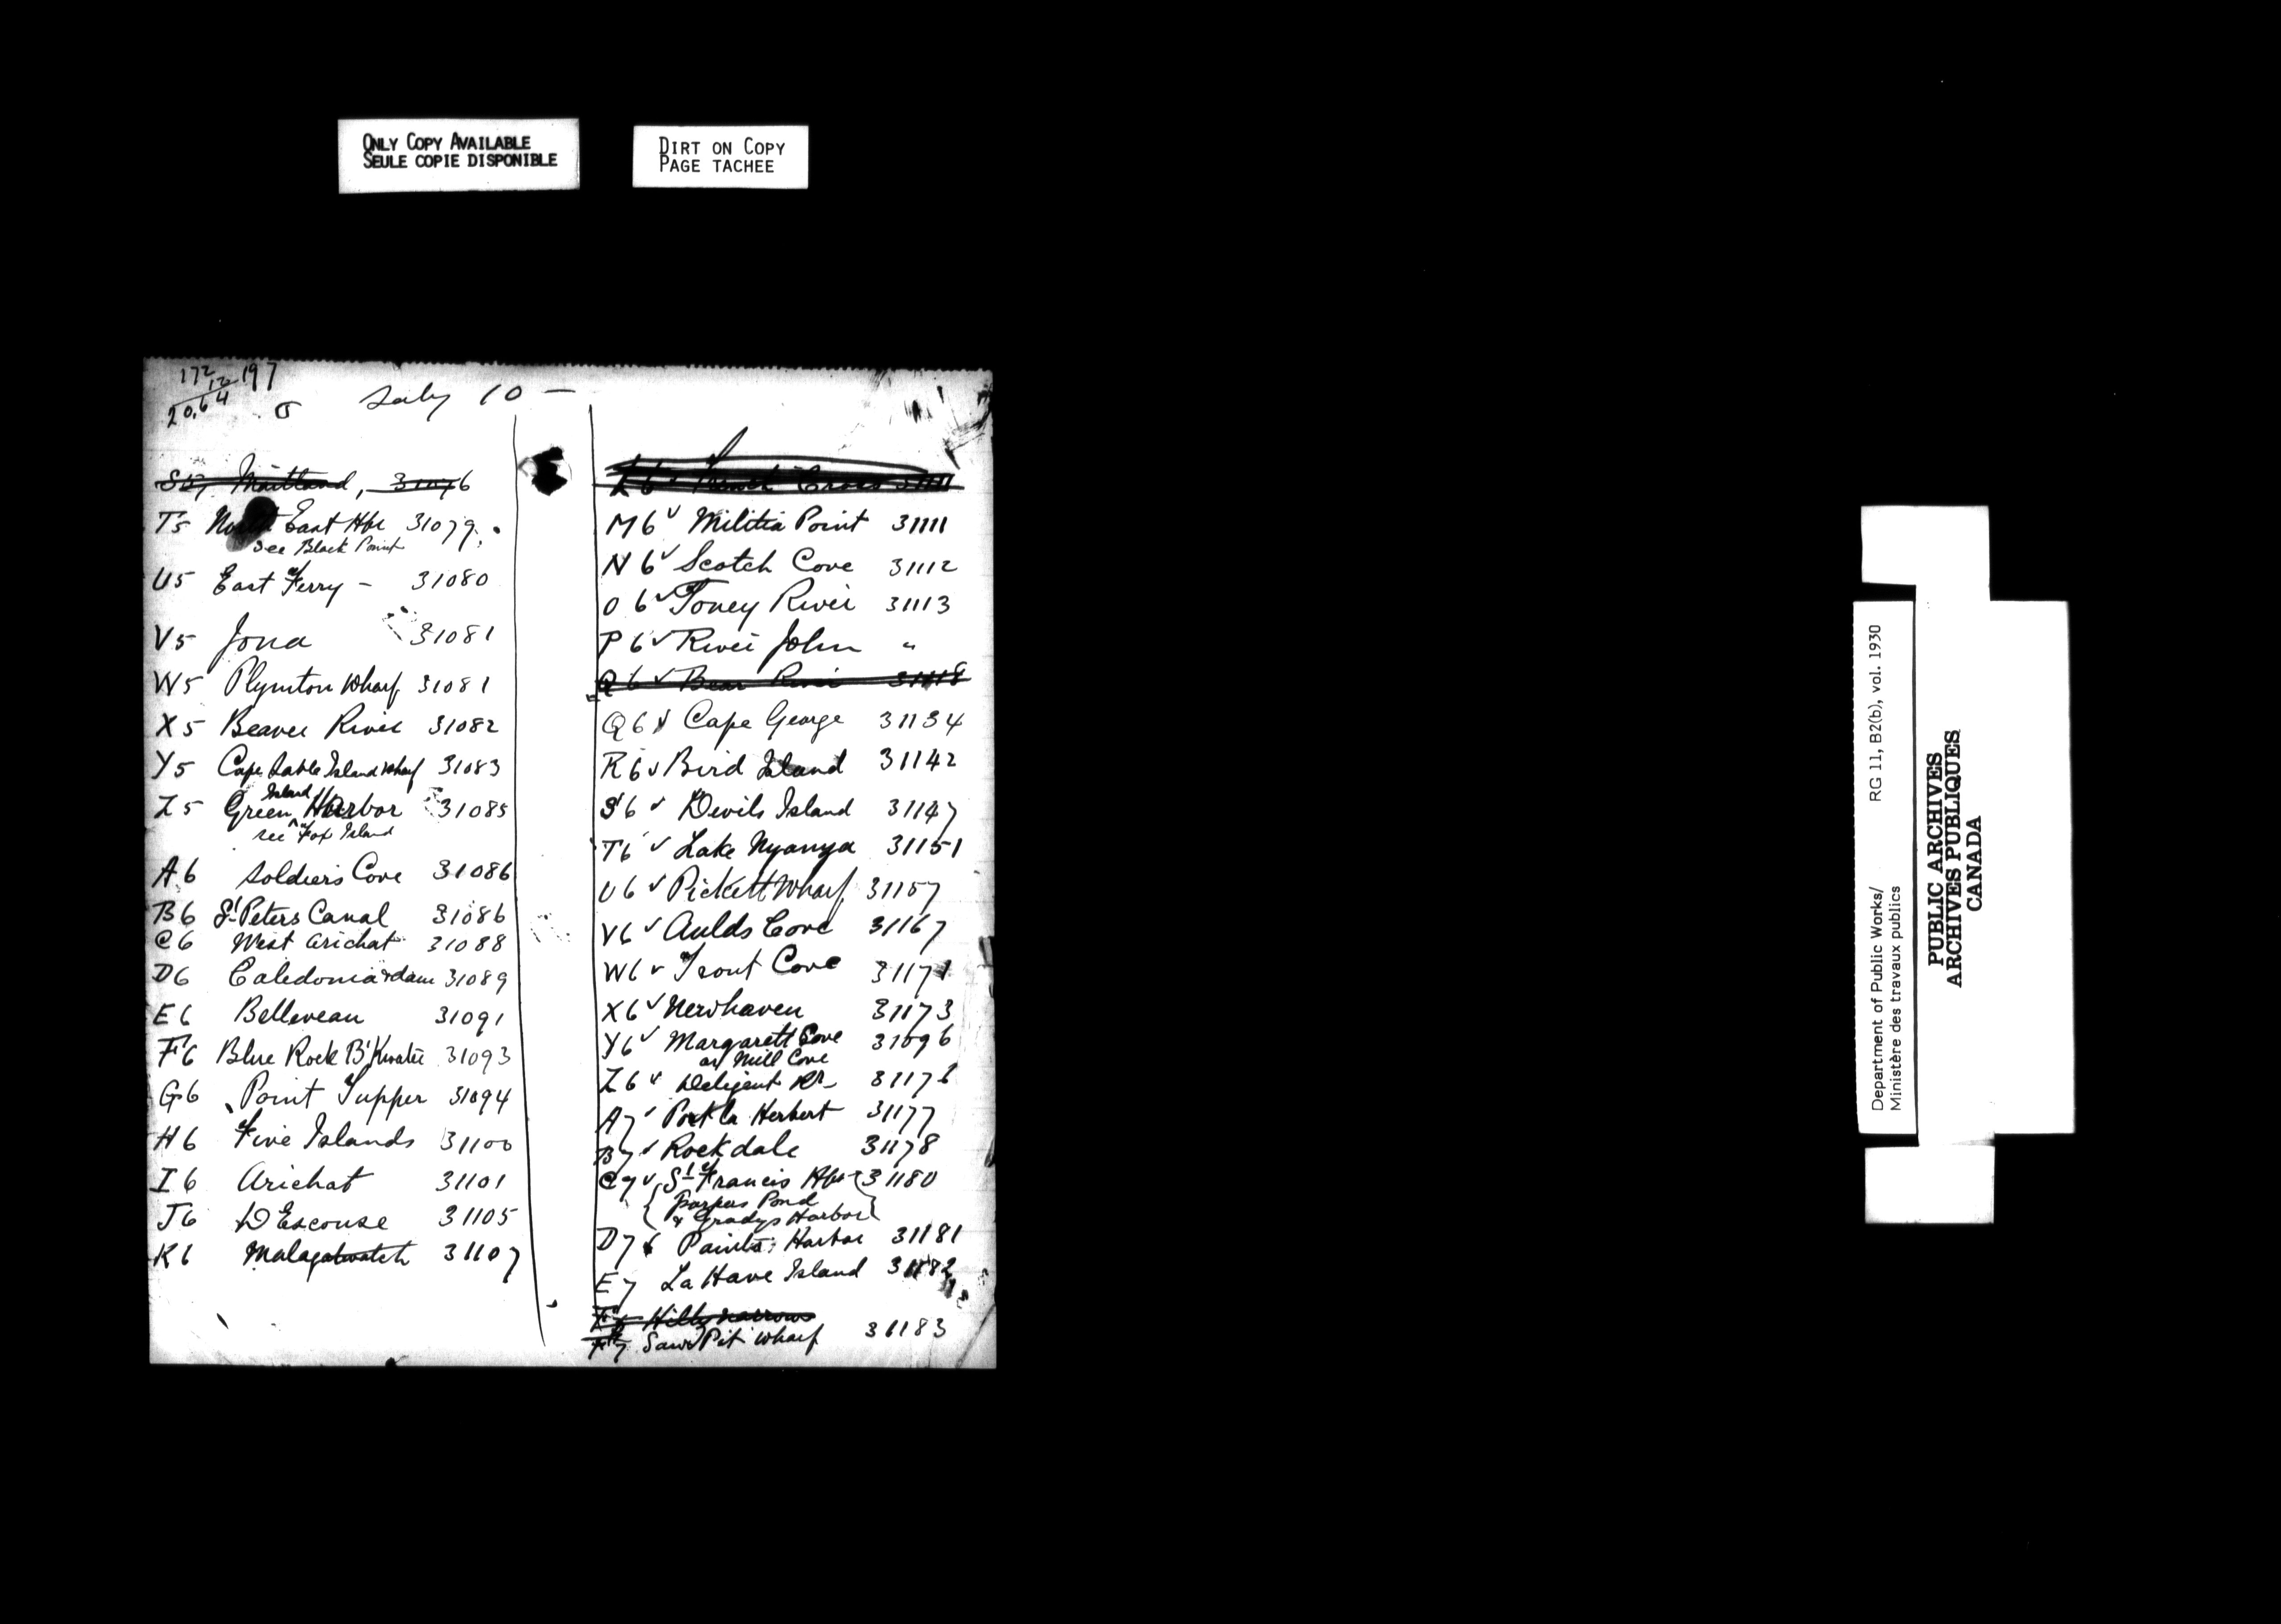 ONLY COPY AVAILABLE
SEULE COPIE DISPONIBLE
DIRT ON COPY
PAGE TACHEE
172 197
12
20.64
July 10 —
S5 Maitland, 31076
T5 North East Hbr 31079.
see Black Point
U5 East Ferry – 31080
V5 Iona 31081
W5 Plymton Wharf 31081
X5 Beaver River 31082
Y5 Cape Sable Island Wharf 31083
Island
Z5 Green Harbor 31085
see Fox Island
A6 Soldiers Cove 31086
B6 St Peters Canal 31086
C6 West Arichat 31088
D6 Caledonia dam 31089
E6 Belleveau 31091
F6 Blue Rock B'kwater 31093
G6 Point Tupper 31094
H6 Five Islands 31100
I6 Arichat 31101
J6 D'Escouse 31105
K6 Malagawatch 31107
L6 French Cross 31111
M6 ✓ Militia Point 31111
N6 ✓ Scotch Cove 31112
O6 ✓ Toney River 31113
P6 ✓ River John "
Q6 ✓ Bear River 31118
Q6 ✓ Cape George 31134
R6 ✓ Bird Island 31142
S6 ✓ Devils Island 31147
T6 ✓ Lake Nyanya 31151
U6 ✓ Pickett Wharf 31157
V6 ✓ Aulds Cove 31167
W6 ✓ Trout Cove 31171
X6 ✓ Newhaven 31173
Y6 ✓ Margarett Cove 31096
or Mill Cove
Z6 ✓ Deligent Rr
A7 ✓ Port la Herbert 31177
B7 ✓ Rockdale 31178
C7 ✓ St Francis Hbr 31180
Porpus Pond
& Gradys Harbor
D7 Paints Harbor 31181
E7 La Have Island 31182
Hills narrows
F7 Saw Pit Wharf 31183
Department of Public Works/ RG 11, B2(b), vol. 1930
Ministère des travaux publics
PUBLIC ARCHIVES
ARCHIVES PUBLIQUES
CANADA